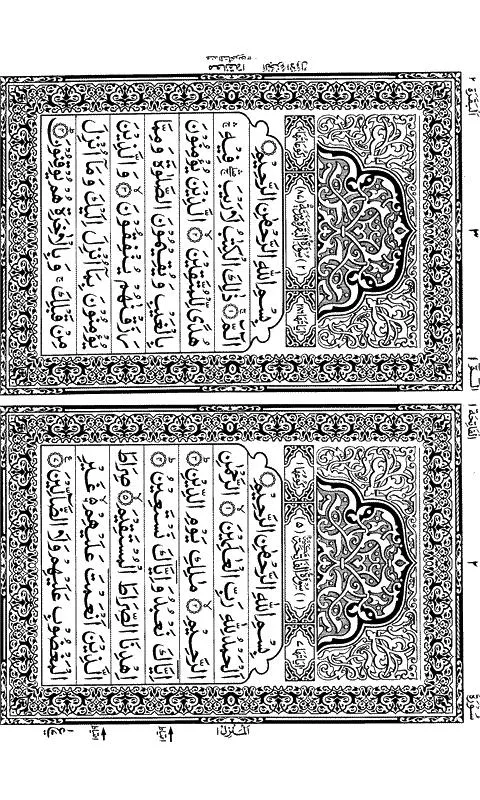 الفاتحة ١
٢
بِسْمِ اللّٰهِ الرَّحْمٰنِ الرَّحِيْمِ
اَلْحَمْدُ لِلّٰهِ رَبِّ الْعٰلَمِيْنَ ۙ الرَّحْمٰنِ
الرَّحِيْمِ ۙ مٰلِكِ يَوْمِ الدِّيْنِ ؕ
اِيَّاكَ نَعْبُدُ وَاِيَّاكَ نَسْتَعِيْنُ ؕ
اِهْدِنَا الصِّرَاطَ الْمُسْتَقِيْمَ ۙ صِرَاطَ
الَّذِيْنَ اَنْعَمْتَ عَلَيْهِمْ ۙ غَيْرِ
الْمَغْضُوْبِ عَلَيْهِمْ وَلَا الضَّآلِّيْنَ
البقرة ٢
٣
بِسْمِ اللّٰهِ الرَّحْمٰنِ الرَّحِيْمِ
الٓمّٓ ۚ ذٰلِكَ الْكِتٰبُ لَا رَيْبَ ۛ فِيْهِ ۛ
هُدًى لِّلْمُتَّقِيْنَ ۙ الَّذِيْنَ يُؤْمِنُوْنَ
بِالْغَيْبِ وَيُقِيْمُوْنَ الصَّلٰوةَ وَمِمَّا
رَزَقْنٰهُمْ يُنْفِقُوْنَ ۙ وَالَّذِيْنَ
يُؤْمِنُوْنَ بِمَآ اُنْزِلَ اِلَيْكَ وَمَآ اُنْزِلَ
مِنْ قَبْلِكَ ۚ وَبِالْاٰخِرَةِ هُمْ يُوْقِنُوْنَ